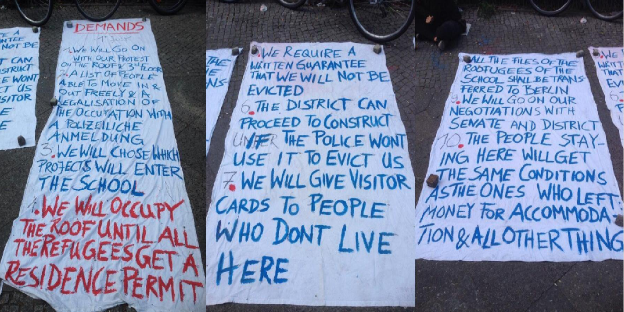 DEMANDS
1. WE WILL GO ON
WITH OUR PROTEST
ON THE ROOF & 3rd FLOOR
2. A LIST OF PEOPLE
ABLE TO MOVE IN &
OUT FREELY & A
LEGALISATION OF
THE OCCUPATION WITH
A POLIZEILICHE
ANMELDUNG
3. WE WILL CHOSE WHICH
PROJECTS WILL ENTER
THE SCHOOL
4. WE WILL OCCUPY
THE ROOF UNTIL ALL
THE REFUGEES GET A
RESIDENCE PERMIT
WE REQUIRE A
WRITTEN GUARANTEE
THAT WE WILL NOT BE
EVICTED
6. THE DISTRICT CAN
PROCEED TO CONSTRUCT
THE POLICE WONT
USE IT TO EVICT US
7. WE WILL GIVE VISITOR
CARDS TO PEOPLE
WHO DONT LIVE
HERE
ALL THE FILES OF THE
ROOFUGEES OF THE
SCHOOL SHALL BE TRANS-
FERRED TO BERLIN
WE WILL GO ON OUR
NEGOTIATIONS WITH
SENATE AND DISTRICT
10. THE PEOPLE STAY-
ING HERE WILL GET
THE SAME CONDITIONS
AS THE ONES WHO LEFT:
MONEY FOR ACCOMMODA-
TION & ALL OTHER THING